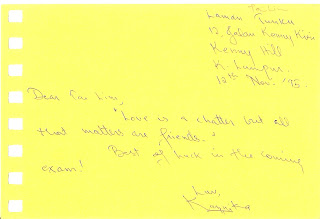 Laman Tunku
12, Jalan Kenny Kiri
Kenny Hill
K. Lumpur.
10th Nov. '75.
Dear Lim,
"Love is a chatter but all
that matters are friends."
Best of luck in the coming
exam!
Luv,